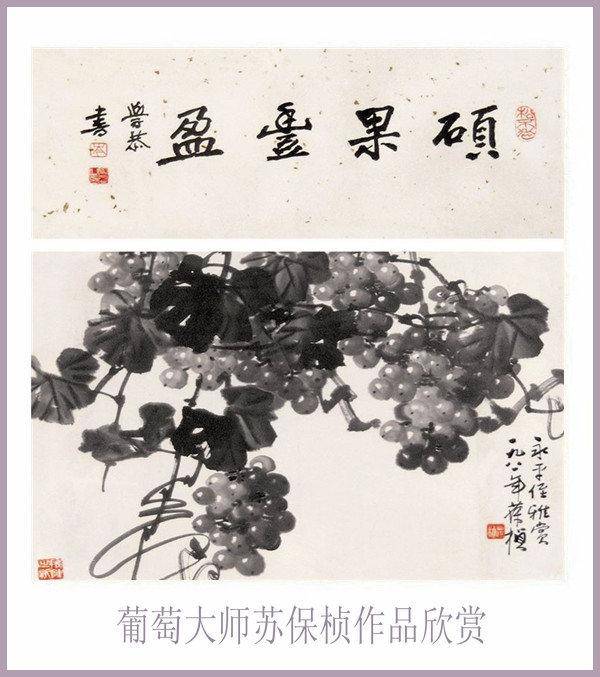 碩果豐盈
學恭
書
永平侄雅賞
一九八一年葆楨
葡萄大师苏保桢作品欣赏